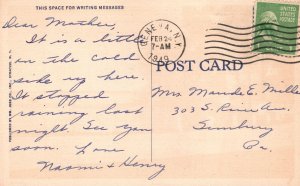 THIS SPACE FOR WRITING MESSAGES
Dear Mother,
It is a little
on the cold
side up here.
It stopped
raining last
night. See you
soon. Love
Naomi & Henry
GENEVA, N.Y.
FEB 24
7-AM
1949
POST CARD
Mrs Maude E. Miller
303 S. River Ave.
Sunbury
Pa.
UNITED STATES
POSTAGE